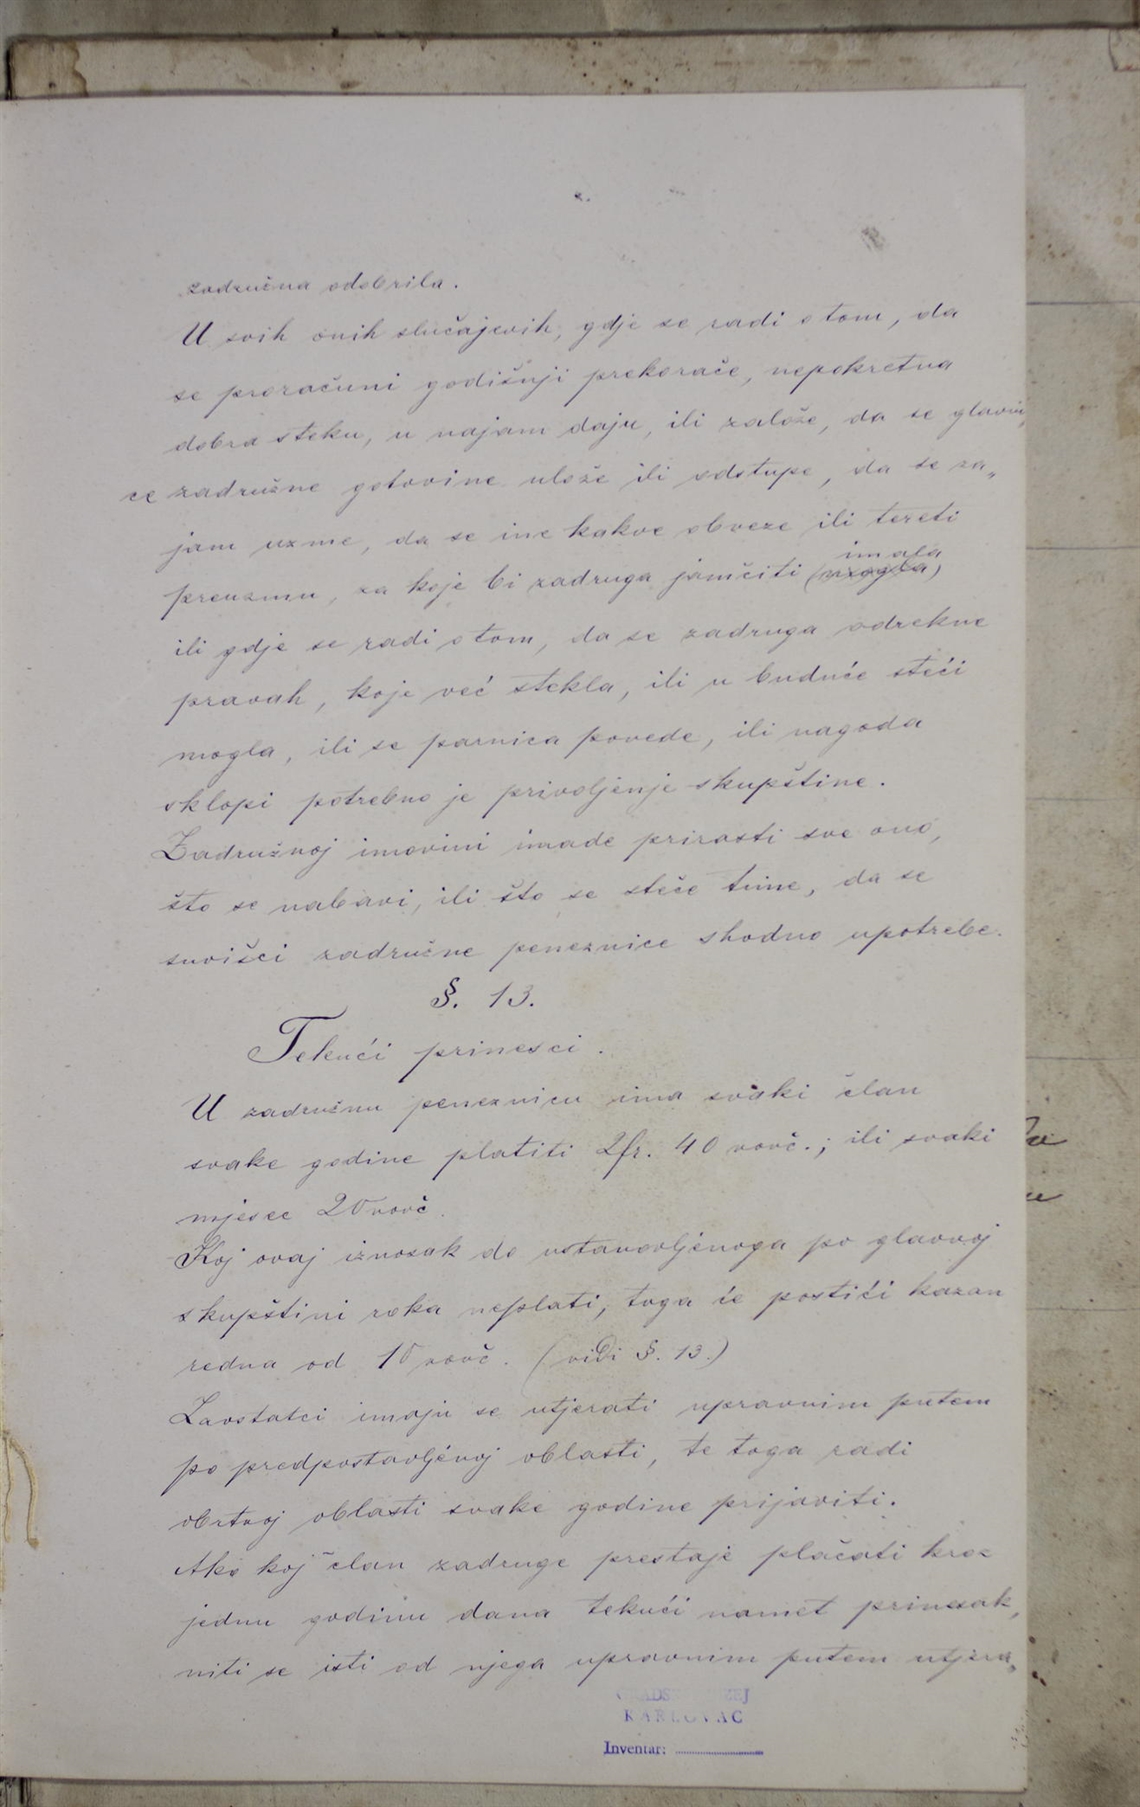 zadružna odobrila.
U svih onih slučajevih, gdje se radi o tom, da
se proračuni godišnji prekorače, nepokretna
dobra steku, u najam daju, ili založe, da se glavni„
ce zadružne gotovine ulože ili odstupe, da se za„
jam uzme, da se ine kakve obveze ili tereti
imala
preuzmu, za koje bi zadruga jamčiti (mogla)
ili gdje se radi o tom, da se zadruga odrekne
pravah, koje već stekla, ili u buduće steći
mogla, ili se parnica povede, ili nagoda
sklopi potrebno je privoljenje skupštine.
Zadružnoj imovini imade prirasti sve ono,
što se nabavi, ili što se steče time, da se
suvišci zadružne peneznice shodno upotrebe.
§. 13.
Tekući prinesci.
U zadružnu peneznicu ima svaki član
svake godine platiti 2fr. 40 novč.; ili svaki
mjesec 20 novč.
Koj ovaj iznosak do ustanovljenoga po glavnoj
skupštini roka neplati, toga će postići kazan
redna od 10 novč. (vidi §. 13.)
Zaostatci imaju se utjerati upravnim putem
po predpostavljenoj oblasti, te toga radi
obrtnoj oblasti svake godine prijaviti.
Ako koj član zadruge prestaje plačati kroz
jednu godinu dana tekući namet prinesak,
niti se isti od njega upravnim putem utjera„
GRADSKI MUZEJ
KARLOVAC
Inventar: